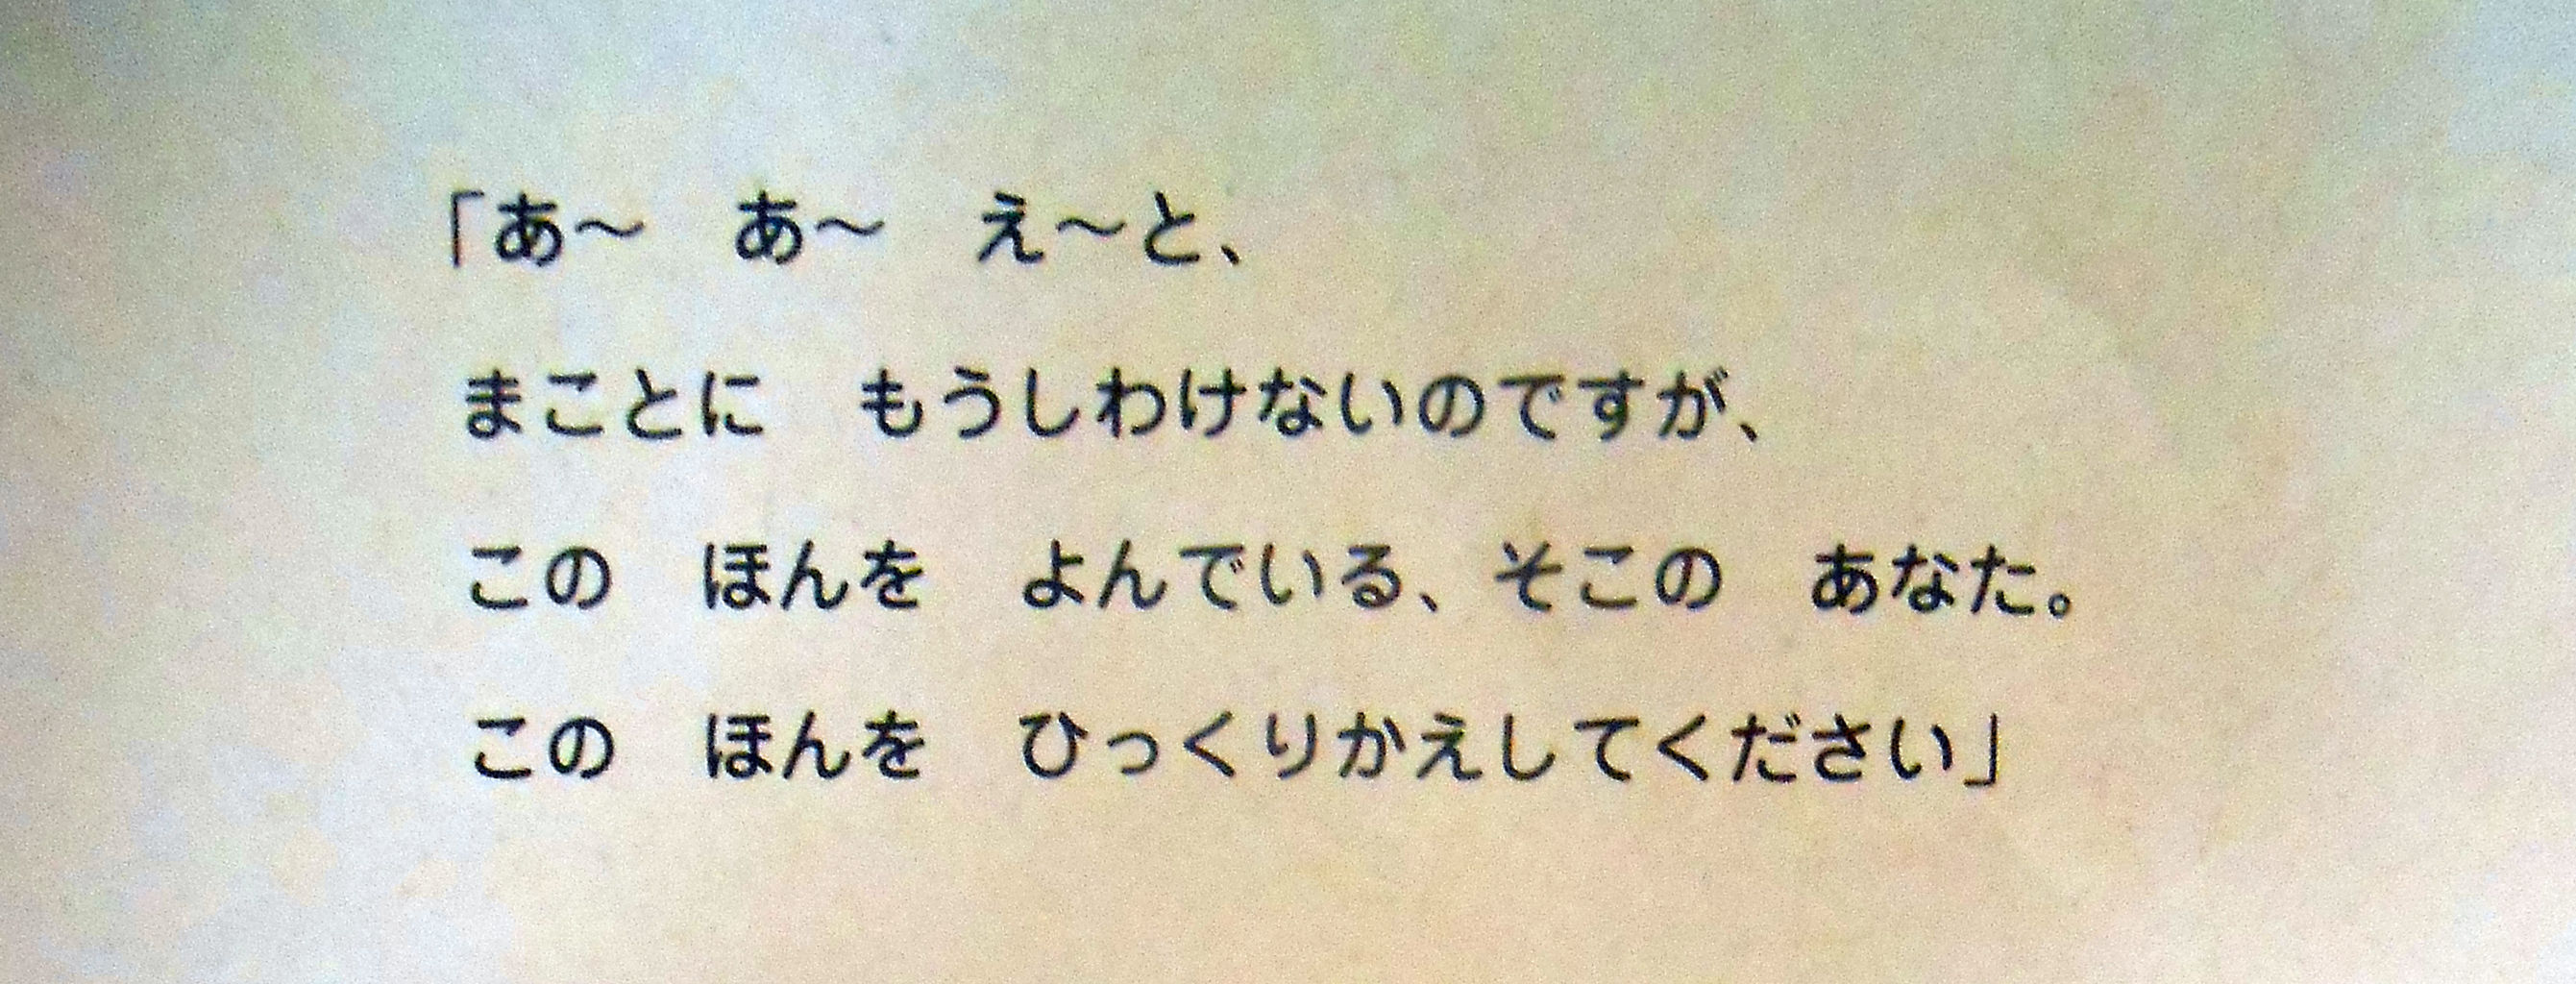 「あ～　あ～　え～と、
まことに　もうしわけないのですが、
この　ほんを　よんでいる、そこの　あなた。
この　ほんを　ひっくりかえしてください」